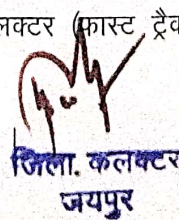 लक्टर (फास्ट ट्रैक
जिला. कलक्टर
जयपुर